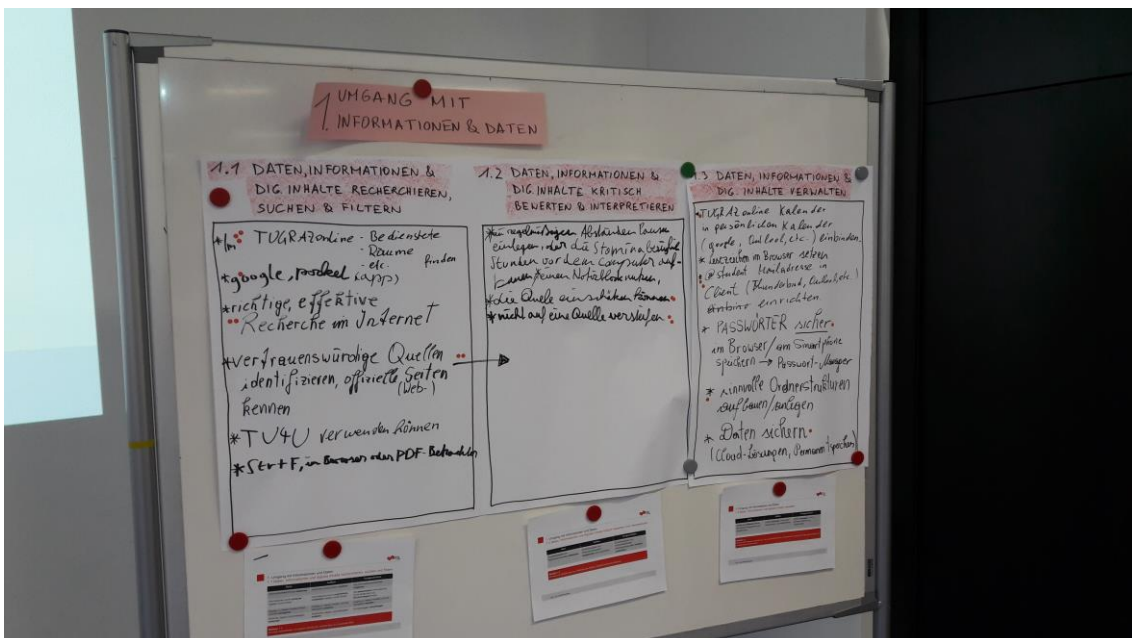 1. UMGANG MIT
INFORMATIONEN & DATEN
1.1 DATEN, INFORMATIONEN &
DIG. INHALTE RECHERCHIEREN,
SUCHEN & FILTERN
* Im TUGRAZonline - Bedienstete
- Räume
- etc. finden
* google, (App)
* richtige, effektive
Recherche im Internet
* vertrauenswürdige Quellen
identifizieren, offizielle Seiten
(Web-)
kennen
* TU4U verwenden können
* Str+F, im Browser oder PDF-
1.2 DATEN, INFORMATIONEN &
DIG. INHALTE KRITISCH
BEWERTEN & INTERPRETIEREN
* in regelmäßigen Abständen Pausen
einlegen, oder die Stamina
Stunden vor dem Computer auf-
bauen
* die Quelle einschätzen können
* nicht auf eine Quelle versteifen
1.3 DATEN, INFORMATIONEN &
DIG. INHALTE VERWALTEN
* TUGRAZonline Kalender
in persönlichen Kalender
(google, Outlook, etc.) einbinden.
* Lesezeichen im Browser setzen
@student Mailadresse in
Client (Thunderbird, Outlook, etc.)
einrichten
* PASSWÖRTER sicher
im Browser/am Smartphone
speichern → Passwort-Manager
* sinnvolle Ordnerstrukturen
aufbauen/anlegen
* Daten sichern
(Cloud-Lösungen,